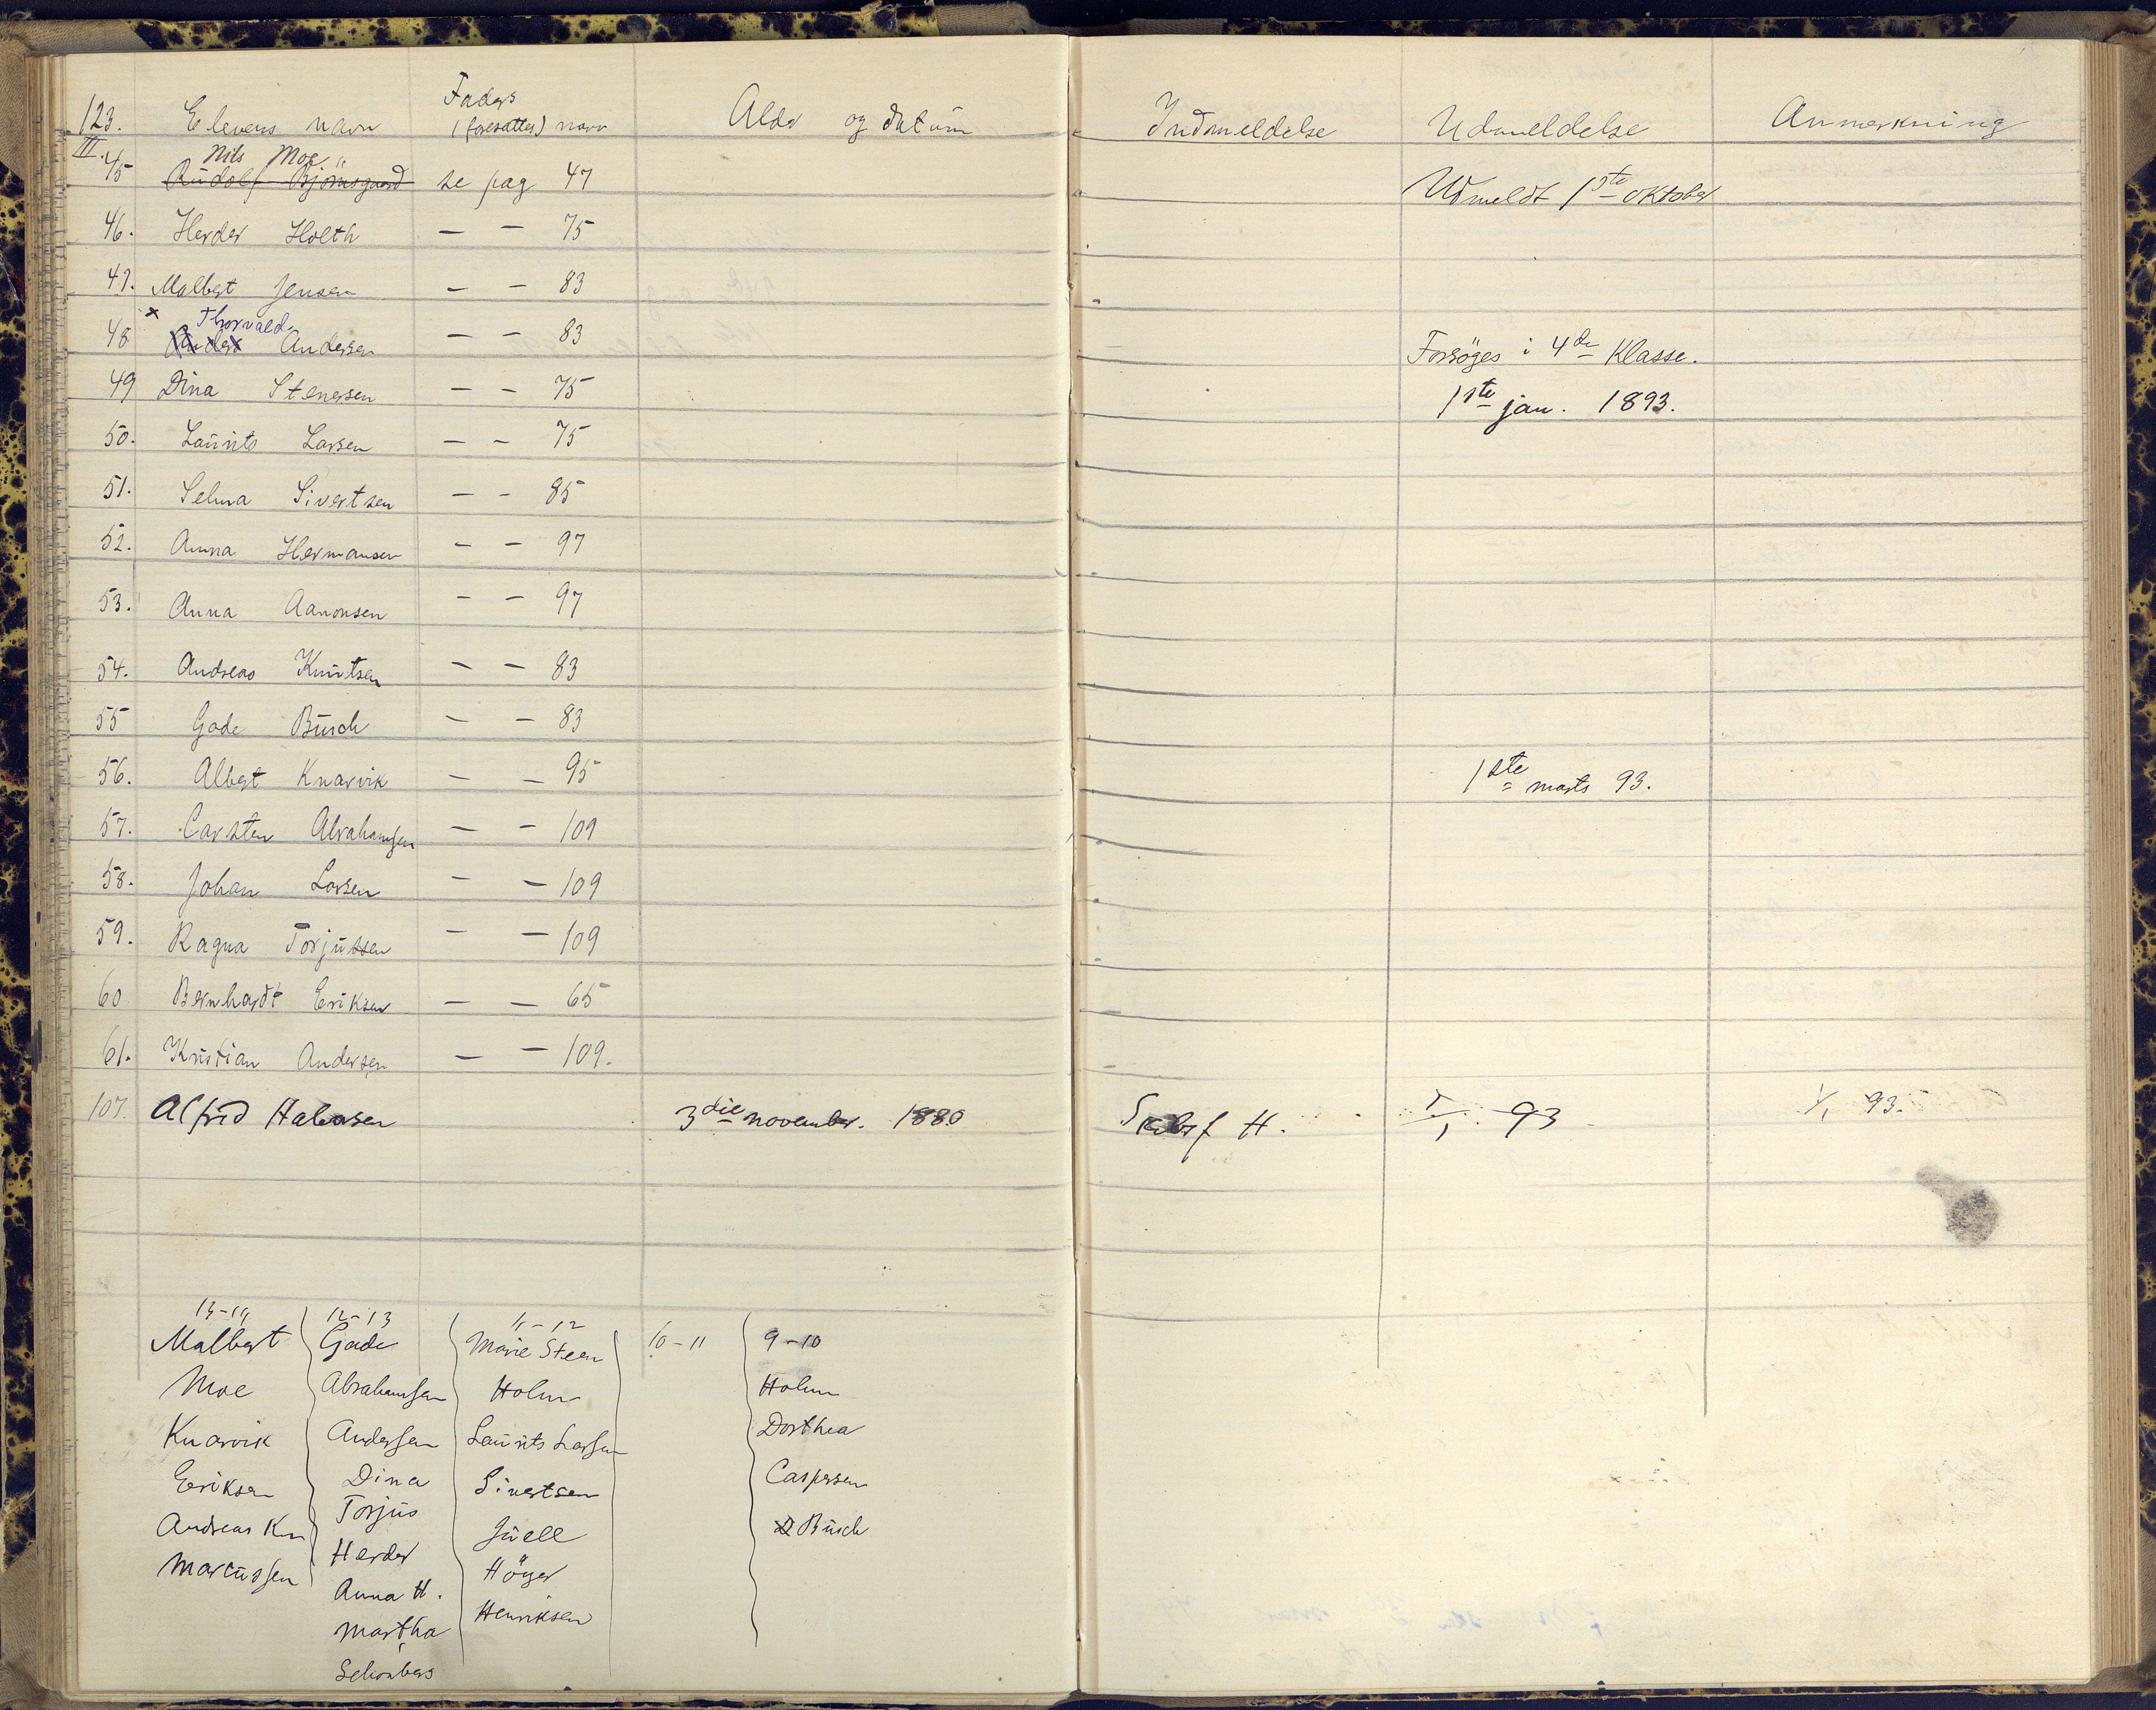 123. Elevens navn Faders (foresattes) navn Alder og datum Indmeldelse Udmeldelse Anmerkning
III.
Nils Moe
45 Rudolf Bjömsgaard se pag 47 Udmeldt 1ste oktober
46. Herder Holth — — 75
47. Malbert Jensen — — 83
x Thorvald
48 Anders Andersen — — 83 Forsöges i 4de Klasse.
49 Dina Stenersen — — 75 1ste jan. 1893.
50. Laurits Larsen — — 75
51. Selma Sivertsen — — 85
52. Anna Hermansen — — 97
53. Anna Aanonsen — — 97
54. Andreas Knutsen — — 83
55 Gade Busch — — 83
56. Albert Knarvik — — 95 1ste marts 93.
57. Carsten Abrahamsen — — 109
58. Johan Larsen — — 109
59. Ragna Torjussen — — 109
60 Bernhardt Eriksen — — 65
61. Kristian Andersen — — 109.
107. Alfred Halvorsen 3die november. 1880 H. 93 1/1 93.
13-14 12-13 11-12 10-11 9-10
Malbert Gade Marie Steen Holm
Moe Abrahamsen Holm Dorthea
Knarvik Andersen Laurits Larsen Caspersen
Eriksen Dina Sivertsen Busch
Andreas Kn Torjus Juell
Marcussen Herder Höyer
Anna H. Henriksen
Martha
Schonberg